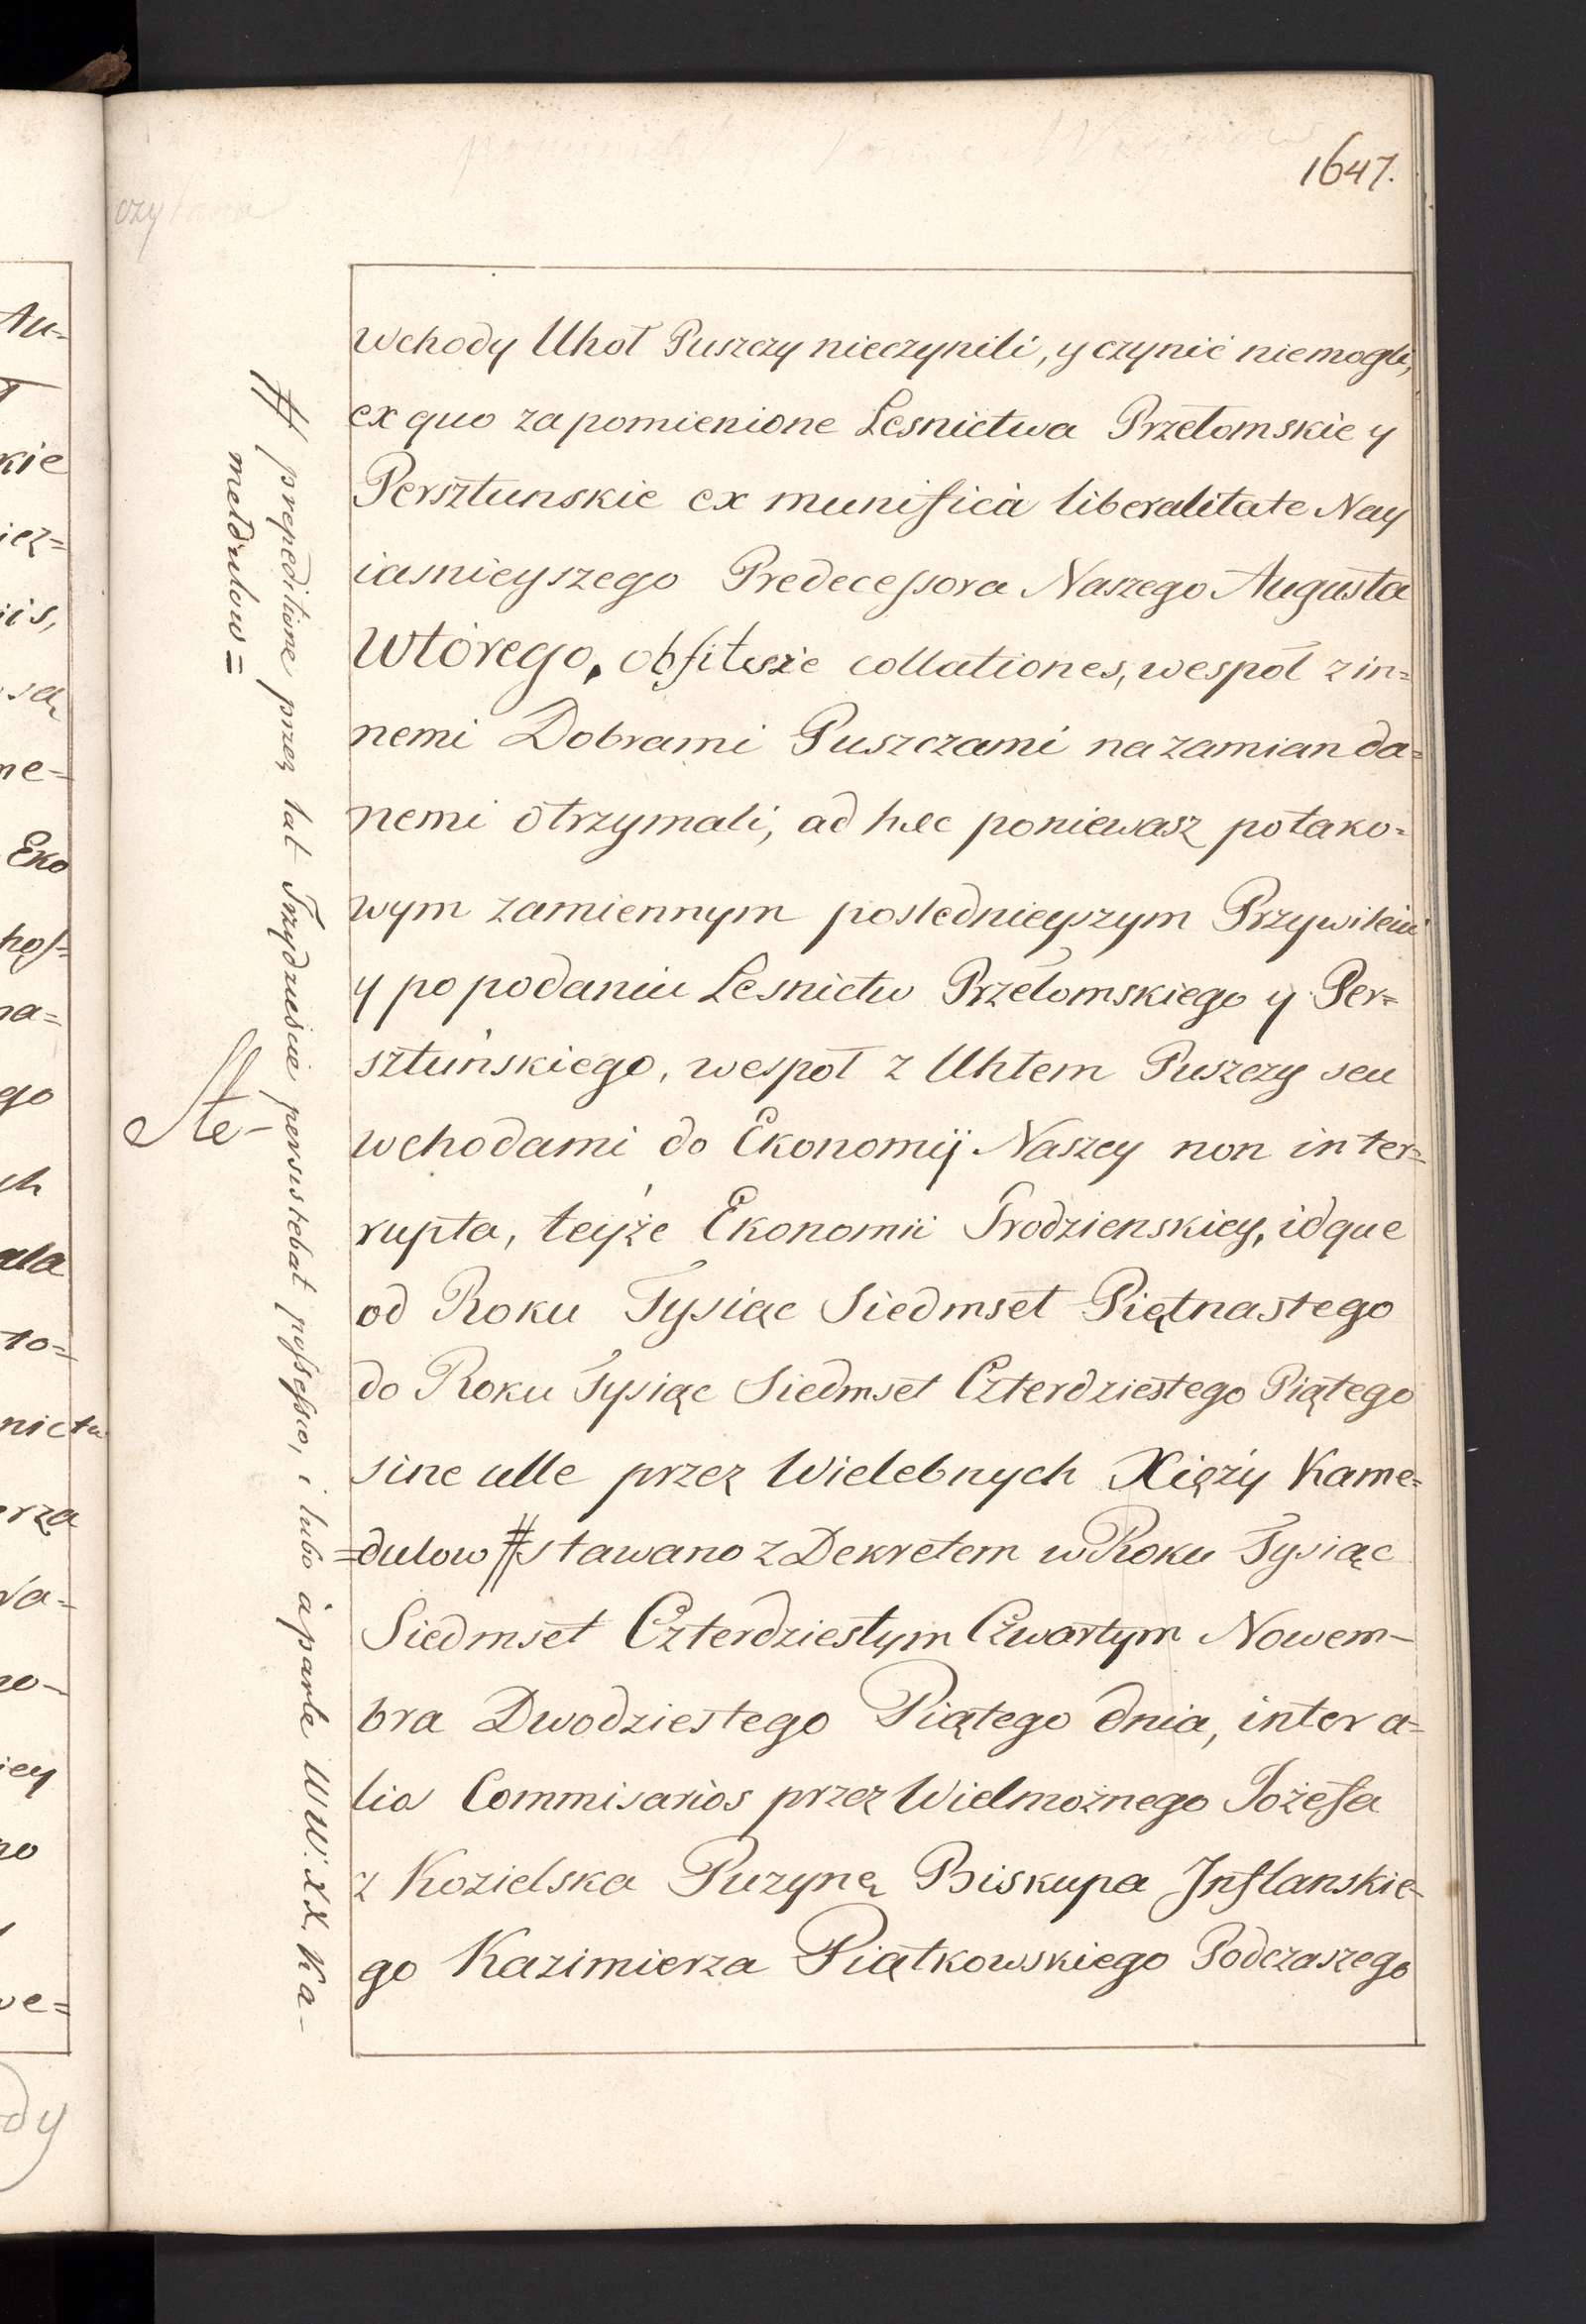 1647.
wchody Uhoł Puszczy nieczynili, y czynić niemogli,
ex quo zapomienione Lesnictwa Przełomskie y
Persztunskie ex munificà liberalitate Nay
iasnieyszego Predecessora Naszego Augusta
Wtórego, obfitsze collationes, wespoł z in=
nemi Dobrami Puszczami na zamian da=
nemi otrzymali, ad hæc poniewasz po tako=
wym zamiennym poslednieyszym Przywileiu
y po podaniu Lesnictw Przełomskiego y Per=
sztuńskiego, wespoł z Uhłem Puszczy seu
wchodami do Ekonomij Naszey non inter=
rupta, teyże Ekonomii Grodzienskiey, idque
od Roku Tysiąc Siedmset Piętnastego
do Roku Tysiąc Siedmset Czterdziestego Piątego
sine ulle przez Wielebnych Xięży Kame=
=dulow # stawano z Dekretem w Roku Tysiąc
Siedmset Czterdziestym Czwartym Nowem-
bra Dwodziestego Piątego dnia, inter a=
lia Commisariòs przez Wielmożnego Jozefa
z Kozielska Puzynę Biskupa Inflanskie-
go Kazimierza Piątkowskiego Podczaszego
# prepeditione przez lat Trzydzieście persistebat possessio, i lubo à parte WW: XX. Ka-
meldulow=
Ste-
Au-
kie
ięz=
iis,
me=
Eko
na=
ego
ch
ała
to=
nictw
erza
wa=
no-
iey
no
we=
dy